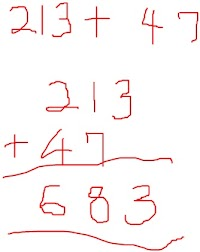 213 + 47
213
+ 47
683